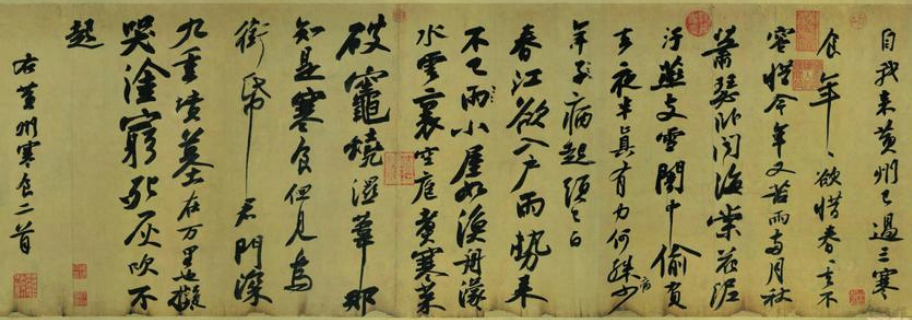 自我来黃州已過三寒
食年〻欲惜春〻去不
容惜今年又苦雨兩月秋
蕭瑟卧聞海棠花泥
汙燕支雪闇中偷負
去夜半真有力何殊少病
年子病起須已白
春江欲入戶雨勢来
不已雨小屋如漁舟濛〻
水雲裏空庖煑寒菜
破竈燒濕葦那
知是寒食但見烏
銜帋君門深
九重墳墓在万里也擬
哭塗窮死灰吹不
起
右黃州寒食二首